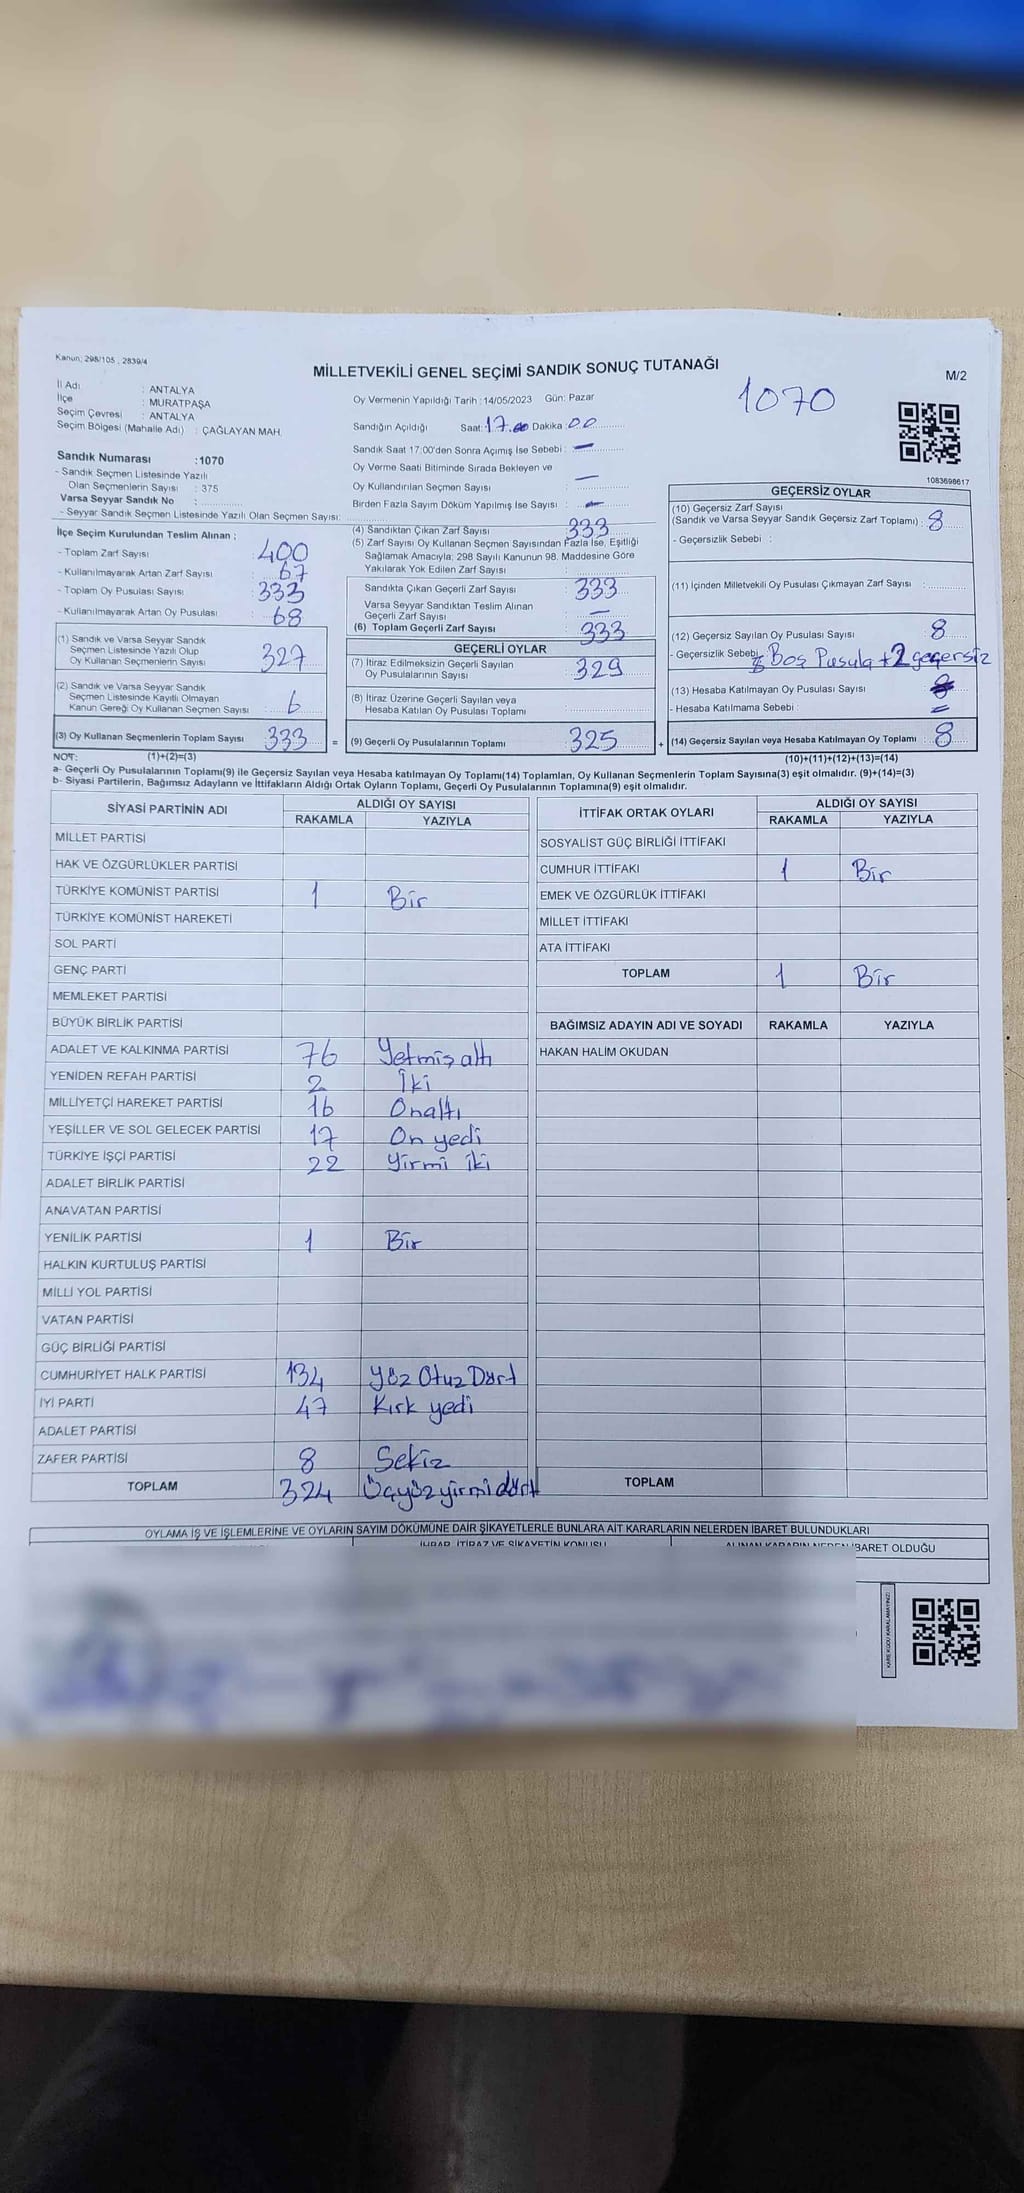 Kanun; 298/105 , 2839/4
MİLLETVEKİLİ GENEL SEÇİMİ SANDIK SONUÇ TUTANAĞI
M/2
1070
İl Adı : ANTALYA
İlçe : MURATPAŞA
Seçim Çevresi : ANTALYA
Seçim Bölgesi (Mahalle Adı) : ÇAĞLAYAN MAH.
Sandık Numarası :1070
- Sandık Seçmen Listesinde Yazılı
Olan Seçmenlerin Sayısı : 375
Varsa Seyyar Sandık No :
- Seyyar Sandık Seçmen Listesinde Yazılı Olan Seçmen Sayısı:
Oy Vermenin Yapıldığı Tarih :14/05/2023 Gün: Pazar
Sandığın Açıldığı Saat:17 Dakika :00
Sandık Saat 17:00'den Sonra Açımış İse Sebebi : —
Oy Verme Saati Bitiminde Sırada Bekleyen ve
Oy Kullandırılan Seçmen Sayısı : —
Birden Fazla Sayım Döküm Yapılmış İse Sayısı : —
1083698617
İlçe Seçim Kurulundan Teslim Alınan ;
- Toplam Zarf Sayısı : 400
- Kullanılmayarak Artan Zarf Sayısı : 67
- Toplam Oy Pusulası Sayısı : 333
- Kullanılmayarak Artan Oy Pusulası : 68
(1) Sandık ve Varsa Seyyar Sandık
Seçmen Listesinde Yazılı Olup
Oy Kullanan Seçmenlerin Sayısı : 327
(2) Sandık ve Varsa Seyyar Sandık
Seçmen Listesinde Kayıtlı Olmayan
Kanun Gereği Oy Kullanan Seçmen Sayısı : 6
(3) Oy Kullanan Seçmenlerin Toplam Sayısı : 333
(4) Sandıktan Çıkan Zarf Sayısı : 333
(5) Zarf Sayısı Oy Kullanan Seçmen Sayısından Fazla İse, Eşitliği
Sağlamak Amacıyla; 298 Sayılı Kanunun 98. Maddesine Göre
Yakılarak Yok Edilen Zarf Sayısı :
Sandıkta Çıkan Geçerli Zarf Sayısı : 333
Varsa Seyyar Sandıktan Teslim Alınan
Geçerli Zarf Sayısı : —
(6) Toplam Geçerli Zarf Sayısı : 333
GEÇERLİ OYLAR
(7) İtiraz Edilmeksizin Geçerli Sayılan
Oy Pusulalarının Sayısı : 329
(8) İtiraz Üzerine Geçerli Sayılan veya
Hesaba Katılan Oy Pusulası Toplamı :
= (9) Geçerli Oy Pusulalarının Toplamı : 325
GEÇERSİZ OYLAR
(10) Geçersiz Zarf Sayısı
(Sandık ve Varsa Seyyar Sandık Geçersiz Zarf Toplamı) : 8
- Geçersizlik Sebebi :
(11) İçinden Milletvekili Oy Pusulası Çıkmayan Zarf Sayısı :
(12) Geçersiz Sayılan Oy Pusulası Sayısı : 8
- Geçersizlik Sebebi: Boş Pusula +2 geçersiz
(13) Hesaba Katılmayan Oy Pusulası Sayısı :
- Hesaba Katılmama Sebebi :
+ (14) Geçersiz Sayılan veya Hesaba Katılmayan Oy Toplamı : 8
NOT: (1)+(2)=(3)
(10)+(11)+(12)+(13)=(14)
a- Geçerli Oy Pusulalarının Toplamı(9) ile Geçersiz Sayılan veya Hesaba katılmayan Oy Toplamı(14) Toplamları, Oy Kullanan Seçmenlerin Toplam Sayısına(3) eşit olmalıdır. (9)+(14)=(3)
b- Siyasi Partilerin, Bağımsız Adayların ve İttifakların Aldığı Ortak Oyların Toplamı, Geçerli Oy Pusulalarının Toplamına(9) eşit olmalıdır.
SİYASİ PARTİNİN ADI ALDIĞI OY SAYISI
RAKAMLA YAZIYLA
MİLLET PARTİSİ
HAK VE ÖZGÜRLÜKLER PARTİSİ
TÜRKİYE KOMÜNİST PARTİSİ 1 Bir
TÜRKİYE KOMÜNİST HAREKETİ
SOL PARTİ
GENÇ PARTİ
MEMLEKET PARTİSİ
BÜYÜK BİRLİK PARTİSİ
ADALET VE KALKINMA PARTİSİ 76 Yetmiş altı
YENİDEN REFAH PARTİSİ 2 İki
MİLLİYETÇİ HAREKET PARTİSİ 16 Onaltı
YEŞİLLER VE SOL GELECEK PARTİSİ 17 On yedi
TÜRKİYE İŞÇİ PARTİSİ 22 Yirmi iki
ADALET BİRLİK PARTİSİ
ANAVATAN PARTİSİ
YENİLİK PARTİSİ 1 Bir
HALKIN KURTULUŞ PARTİSİ
MİLLİ YOL PARTİSİ
VATAN PARTİSİ
GÜÇ BİRLİĞİ PARTİSİ
CUMHURİYET HALK PARTİSİ 134 Yüz Otuz Dört
İYİ PARTİ 47 Kırk yedi
ADALET PARTİSİ
ZAFER PARTİSİ 8 Sekiz
TOPLAM 324 Üçyüzyirmidört
İTTİFAK ORTAK OYLARI ALDIĞI OY SAYISI
RAKAMLA YAZIYLA
SOSYALİST GÜÇ BİRLİĞİ İTTİFAKI
CUMHUR İTTİFAKI 1 Bir
EMEK VE ÖZGÜRLÜK İTTİFAKI
MİLLET İTTİFAKI
ATA İTTİFAKI
TOPLAM 1 Bir
BAĞIMSIZ ADAYIN ADI VE SOYADI RAKAMLA YAZIYLA
HAKAN HALİM OKUDAN
TOPLAM
OYLAMA İŞ VE İŞLEMLERİNE VE OYLARIN SAYIM DÖKÜMÜNE DAİR ŞİKAYETLERLE BUNLARA AİT KARARLARIN NELERDEN İBARET BULUNDUKLARI
İHBAR, İTİRAZ VE ŞİKAYETİN KONUSU
ALINAN KARARIN NEDEN İBARET OLDUĞU
KARE KODU KARALAMAYINIZ!